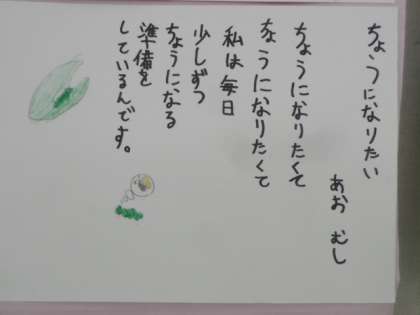 ちょうになりたい
あお むし
ちょうになりたくて
ちょうになりたくて
私は毎日
少しずつ
ちょうになる
準備を
しているんです。